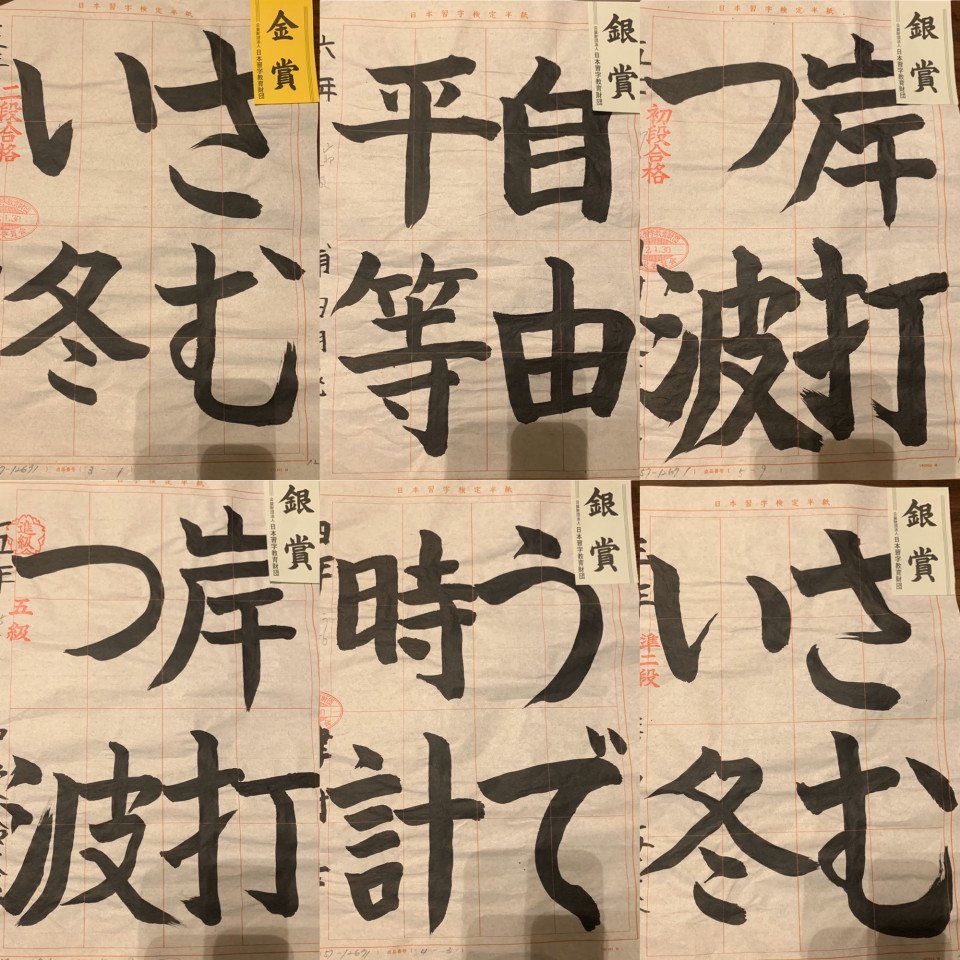 日本習字検定半紙
金賞
公益財団法人 日本習字教育財団
さむ
い冬
二段合格
日本習字検定半紙
銀賞
公益財団法人 日本習字教育財団
自由
平等
六年
日本習字検定半紙
銀賞
公益財団法人 日本習字教育財団
岸打
つ波
初段合格
日本習字検定半紙
銀賞
公益財団法人 日本習字教育財団
岸打
つ波
五年
進級
五級
日本習字検定半紙
銀賞
公益財団法人 日本習字教育財団
うで
時計
四年
日本習字検定半紙
銀賞
公益財団法人 日本習字教育財団
さむ
い冬
準二段